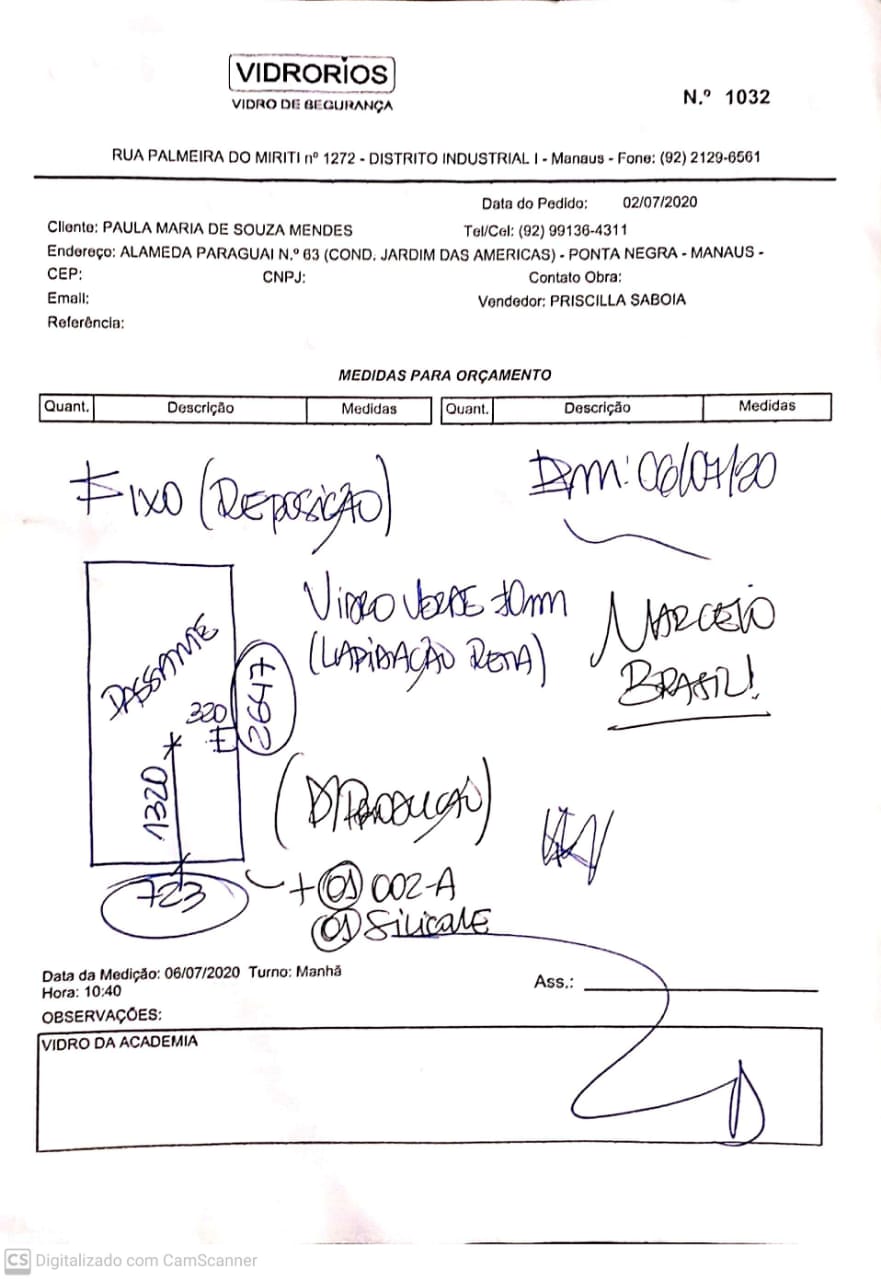 VIDRORIOS
VIDRO DE SEGURANÇA
N.º 1032
RUA PALMEIRA DO MIRITI nº 1272 - DISTRITO INDUSTRIAL I - Manaus - Fone: (92) 2129-6561
Data do Pedido: 02/07/2020
Cliente: PAULA MARIA DE SOUZA MENDES Tel/Cel: (92) 99136-4311
Endereço: ALAMEDA PARAGUAI N.º 63 (COND. JARDIM DAS AMERICAS) - PONTA NEGRA - MANAUS -
CEP: CNPJ: Contato Obra:
Email: Vendedor: PRISCILLA SABOIA
Referência:
MEDIDAS PARA ORÇAMENTO
Quant. Descrição Medidas Quant. Descrição Medidas
FIXO (REPOSIÇÃO)
DM: 06/07/20
VIDRO VERDE 10mm
(LAPIDAÇÃO RETA)
MARCELO
BRASIL!
PASSANTE
2647
320
1320
(P/PRODUÇÃO)
723
+ 01 002-A
01 SILICONE
Data da Medição: 06/07/2020 Turno: Manhã
Hora: 10:40
Ass.:
OBSERVAÇÕES:
VIDRO DA ACADEMIA
CS Digitalizado com CamScanner